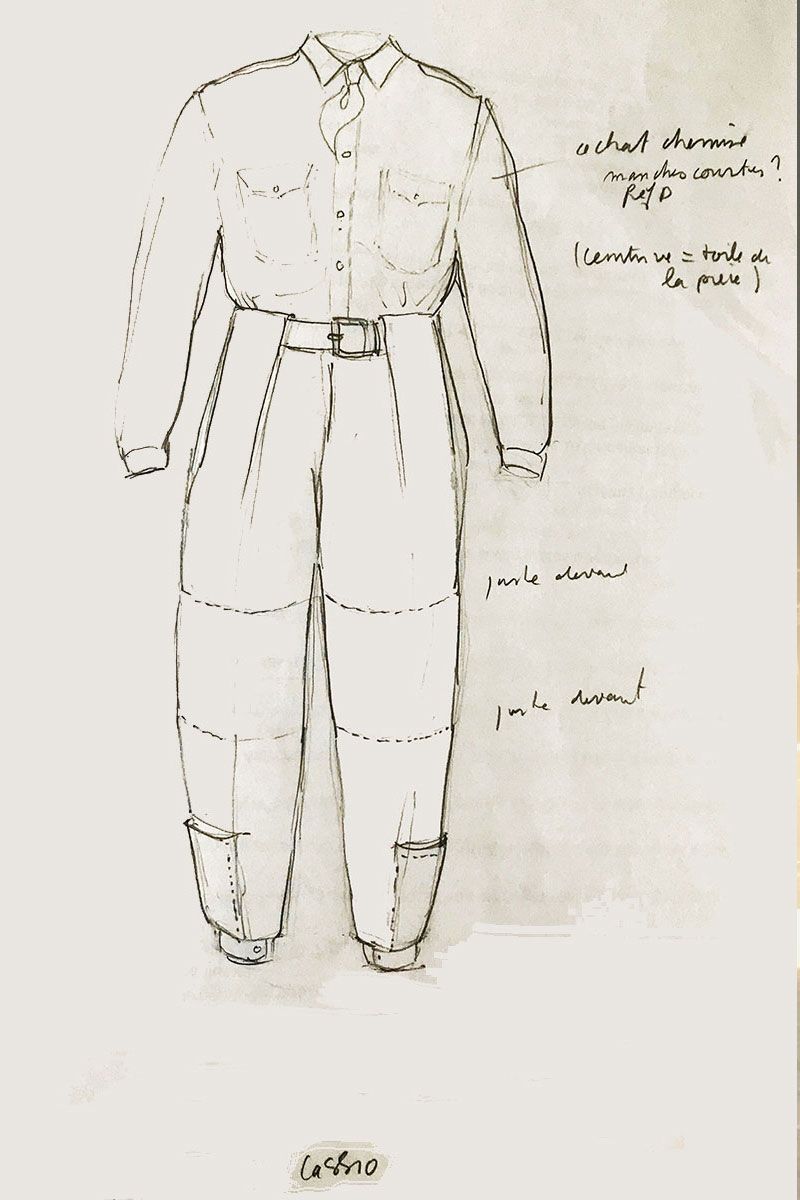 achat chemise
manches courtes ?
Réf D
(ceinture = toile de
la pièce )
juste devant
juste devant